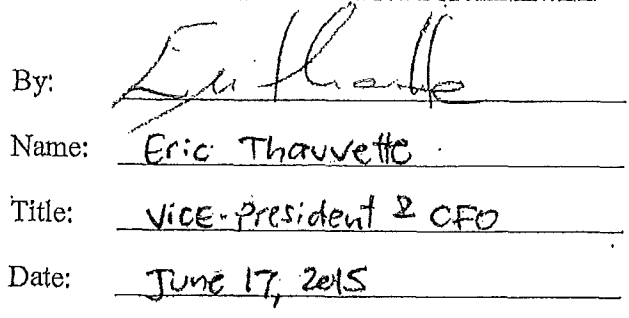 By: Eric Thauvette
Name: Eric Thauvette
Title: Vice-President & CFO
Date: June 17, 2015